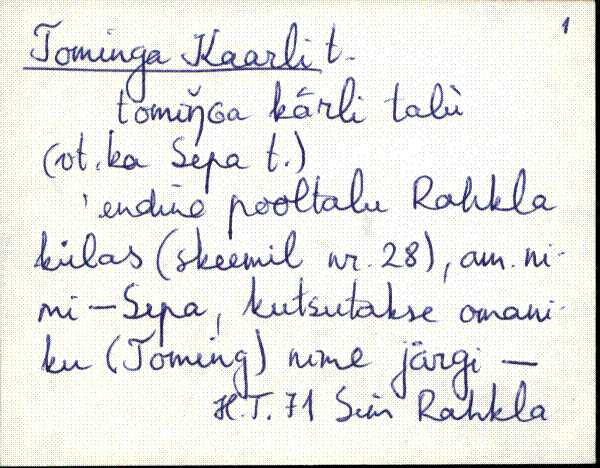 1
Tominga Kaarli t.
tomiŋ̆Ga kārli talù
(vt. ka Sepa t.)
'endine pooltalu Rahkla
külas (skeemil nr. 28), am. ni-
mi – Sepa, kutsutakse omani-
ku (Toming) nime järgi —
H.T. 71 Sim Rahkla